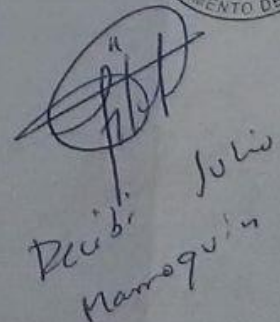 MENTO DE
Recibi Julio
Marroquin